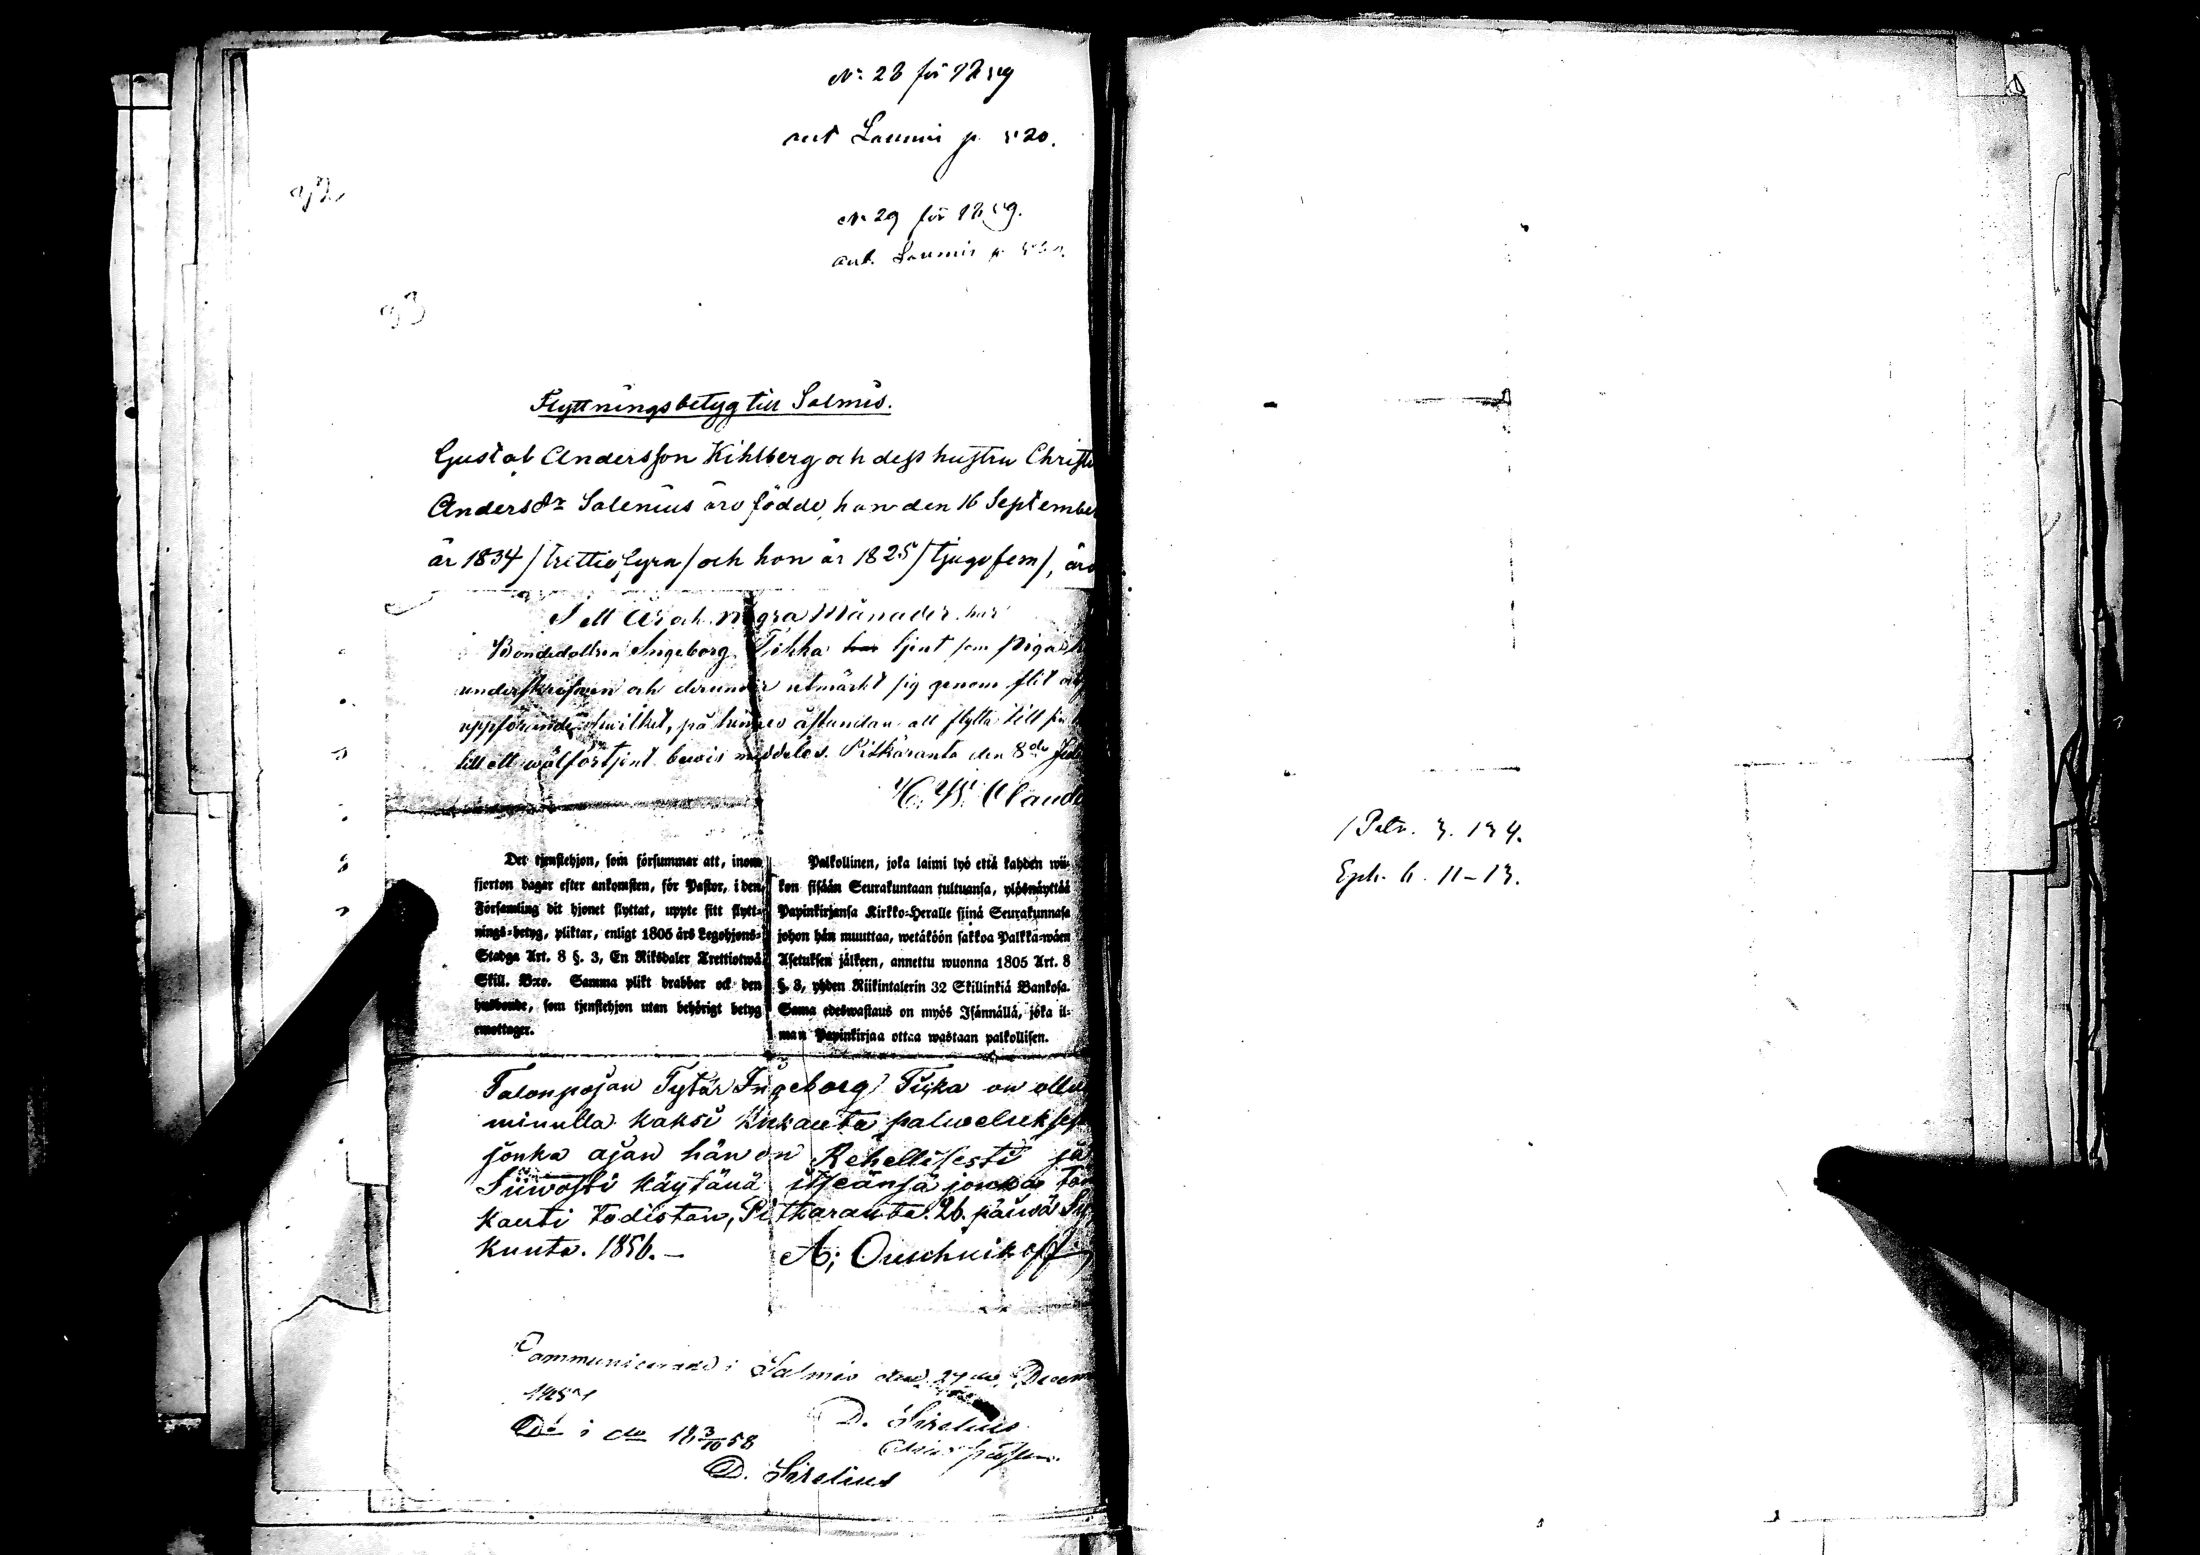 N: 28 för 1859
ant Laumis p 520.
92
N: 29 för 1859.
ant. Laumis p
93
Flyttningsbetyg till Salmis.
Gustaf Andersson Kihlberg och dess hustru Christi
Andersdr Salenius äro födde, han den 16 September
år 1834 / trettiofyra / och hon år 1825 / tjugofem /, äro
I ett År och några Månader har
Bondedottren Ingeborg Tiikka tjent som piga h
underskrifven och derunder utmärkt sig genom flit och
uppförande hvilket, på hennes åstundan att flytta till sin
till ett wälförtjent bewis meddelas. Pitkäranta den 8de Jul
Det tjenstehjon, som försummar att, inom
fjorton dagar efter ankomsten, för Pastor, i den
Församling dit hjonet flyttat, uppte sitt flytt-
nings-betyg, pliktar, enligt 1805 års Legohjons-
Stadga Art. 8 §. 3, En Riksdaler Trettiotwå
Skill. Bco. Samma plikt drabbar ock den
husbonde, som tjenstehjon utan behörigt betyg
emottager.
Palkollinen, joka laimi lyö että kahden wii-
kon sisään Seurakuntaan tultuansa, ylösnäyttää
Papinkirjansa Kirkko-Heralle siinä Seurakunnasa
johon hän muuttaa, wetäköön sakkoa Palkka-wäen
Asetuksen jälkeen, annettu wuonna 1805 Art. 8
§. 3, yhden Riikintalerin 32 Skillinkiä Bankosa.
Sama edeswastaus on myös Isännällä, joka il-
man Papinkirjaa ottaa wastaan palkollisen.
Talonpojan Tytär Ingeborg Tiika on ollu
minulla kaksi kukauta palweluksesa
jonka ajan hän on Rehellisesti ja
Siiwosti käytänä itseänsä jonka tän
kauti todistan, Pitkaranta. 26. päiwä
kuuta. 1856. — A; Ouschnikoff
Communicerade i Salmis den 27de Decem
D. Sirelius
Do i do 18 3/10 58
D. Sirelius
Eph. 6. 11–13.